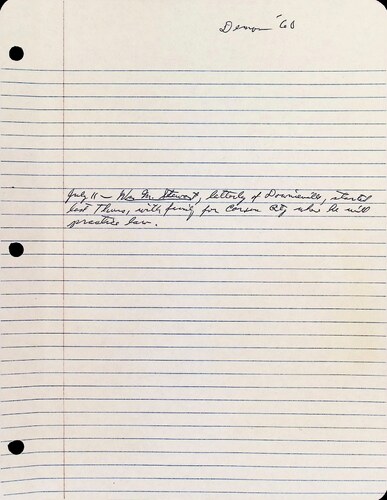 Democ '60
July 11 – Wm M. Stewart, latterly of Downieville, started
last Thurs, with family for Carson City where he will
practice law.